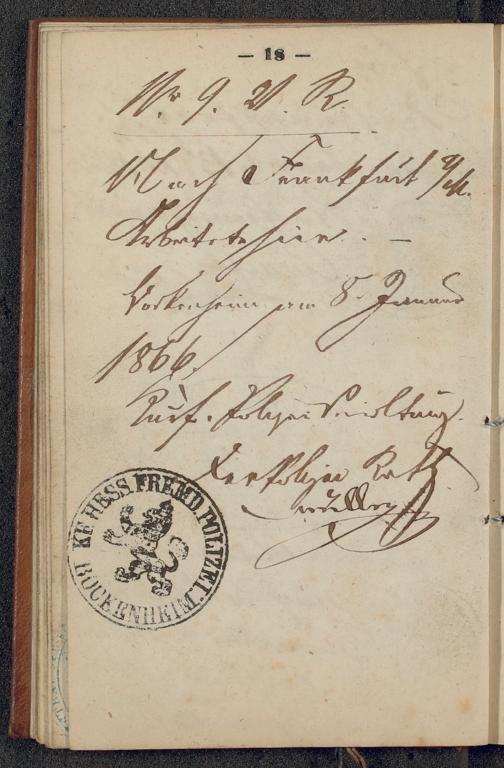 — 18 —
Nr. 9. V. R.
Nach Frankfurt a/M.
Arbeitete hier. —
Bockenheim am 8. Januar
1866.
Kurf. Polizei Verwaltung.
Der Polizei Rath
KF. HESS. FREMD. POLIZEI.
BOCKENHEIM.